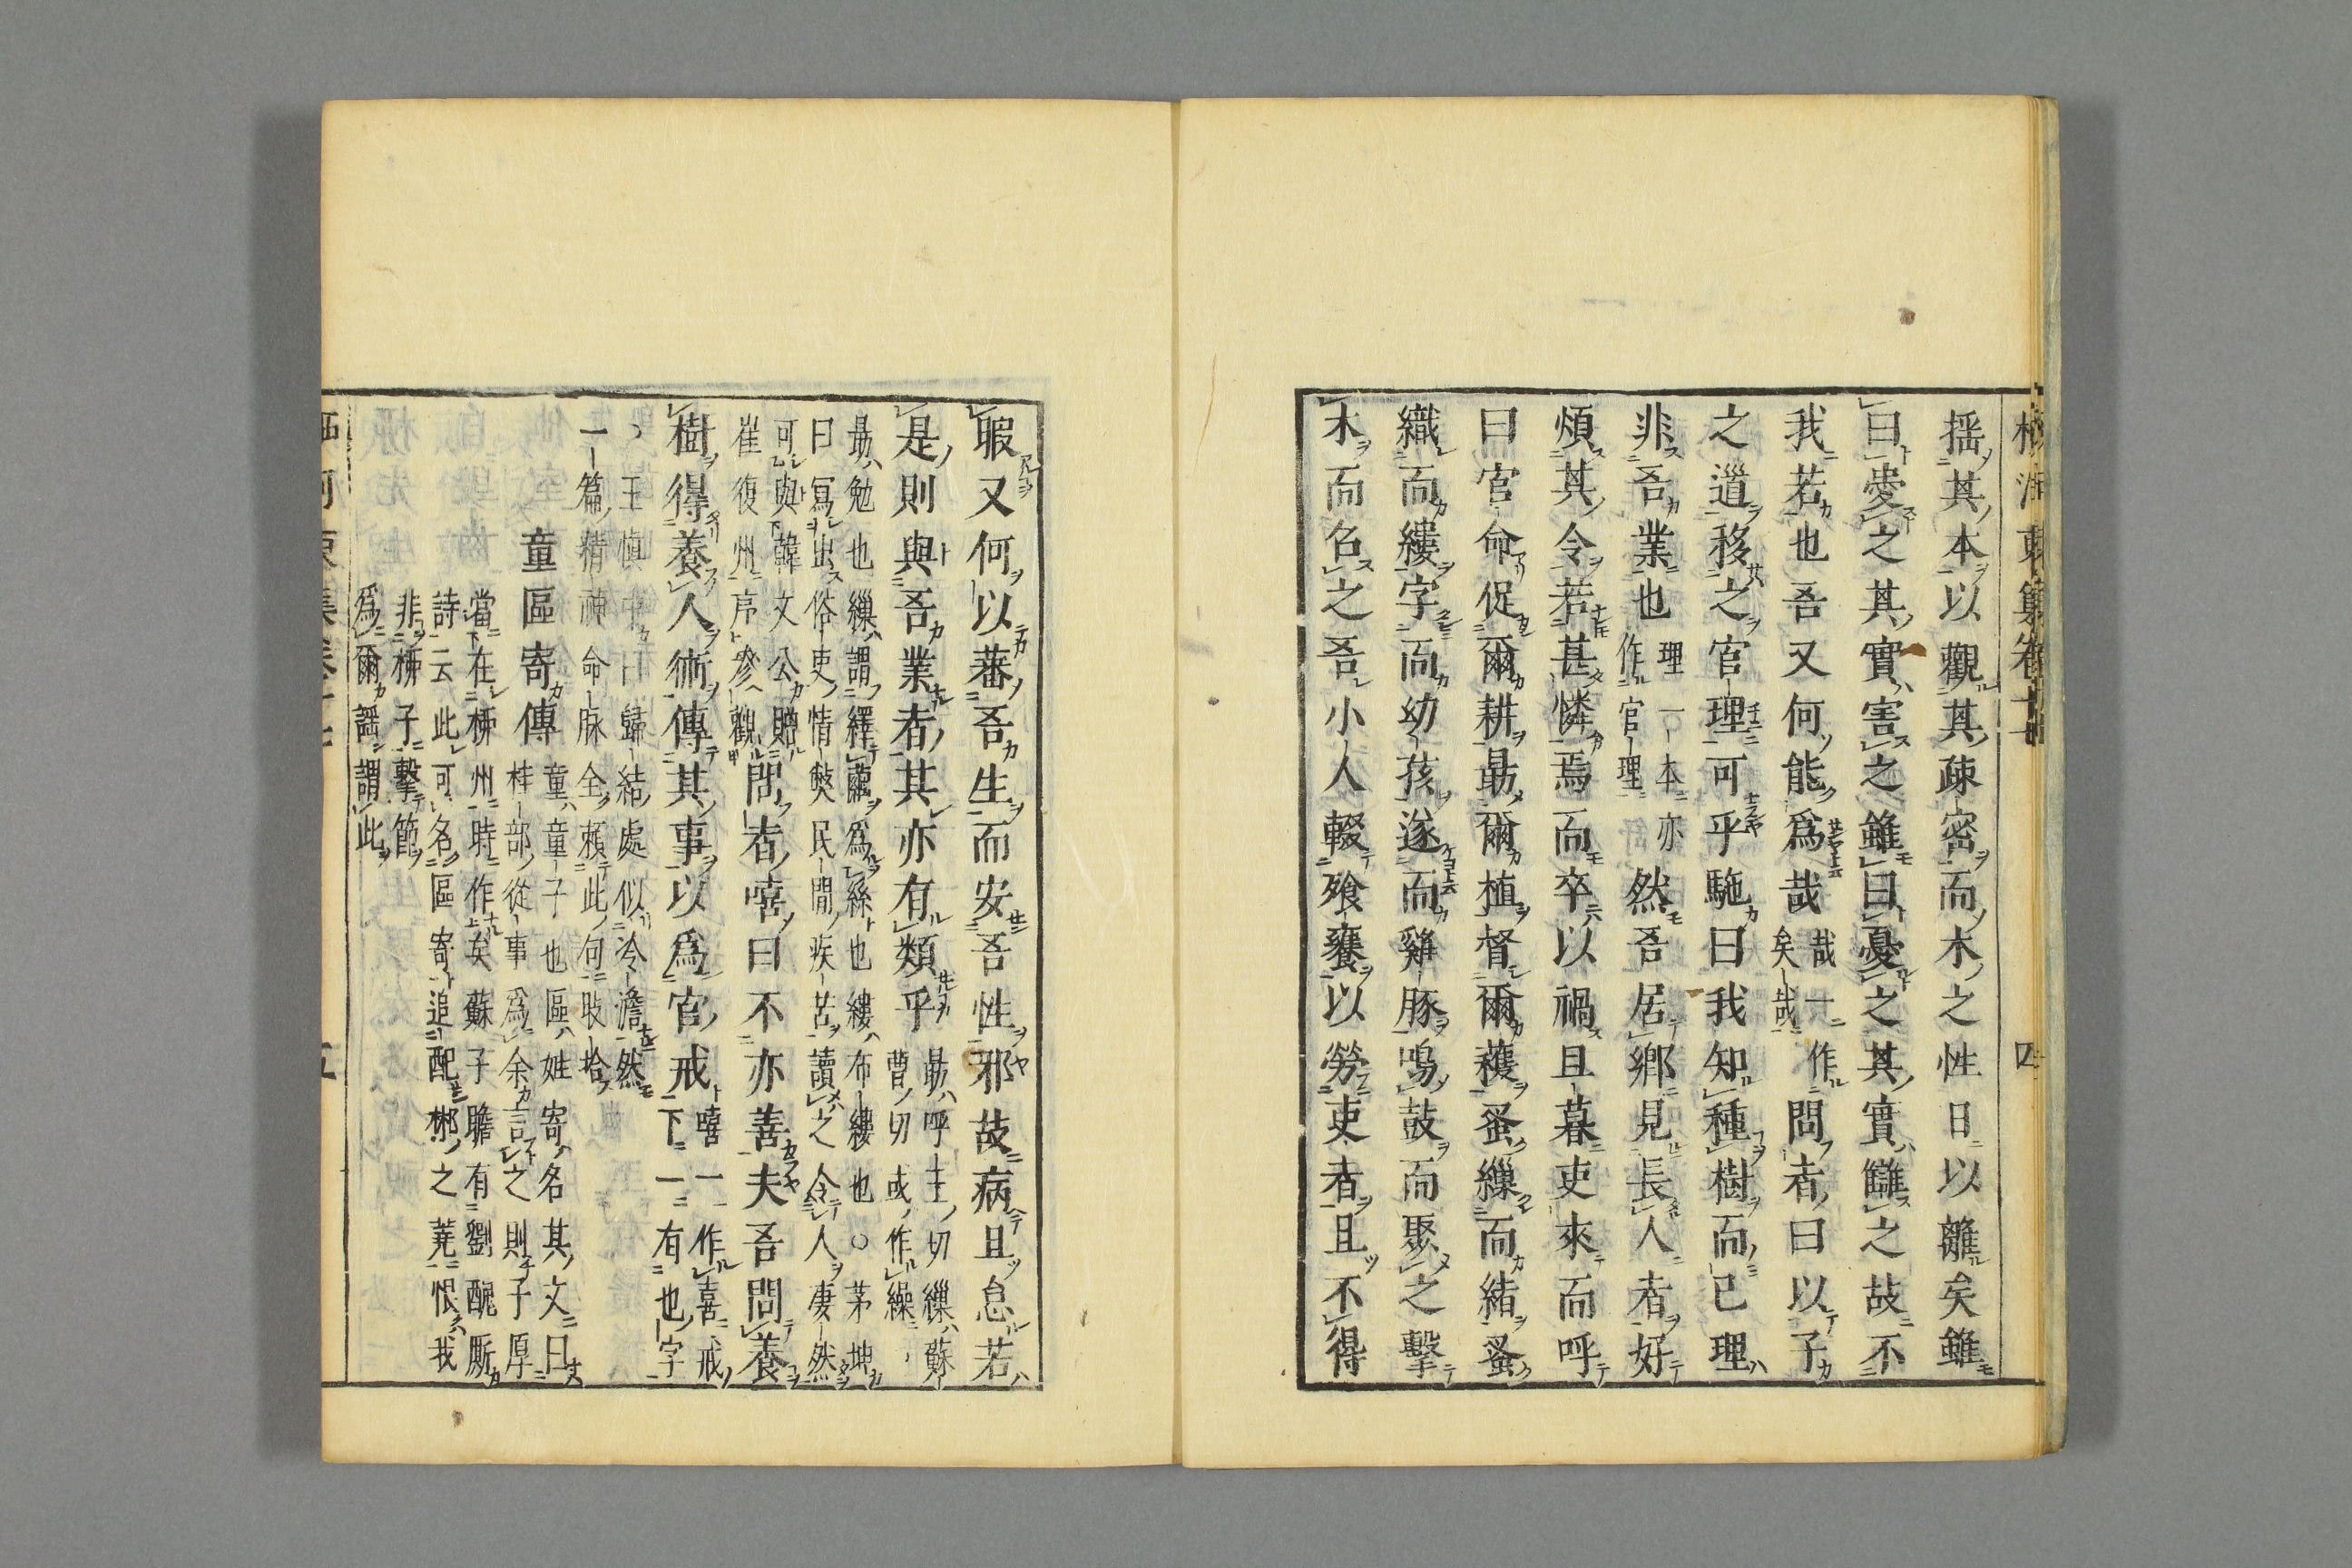 搖其本以觀其疎密而木之性日以離矣雖
曰愛之其實害之雖曰憂之其實讎之故不
我若也吾又何能爲哉哉一作矣哉問者曰以子
之道移之官理可乎駞曰我知種樹而已理
非吾業也理一本亦作官理然吾居鄉見長人者好
煩其令若甚憐焉而卒以禍且暮吏來而呼
曰官命促爾耕勗爾植督爾穫蚤繅而緒蚤
織而縷字而幼孩遂而雞豚鳴鼓而聚之擊
木而召之吾小人輟飱饔以勞吏者且不得
暇又何以蕃吾生而安吾性邪故病且怠若
是則與吾業者其亦有類乎勗呼玉切繅蘇曹切或作繰
勗勉也繅謂繹繭爲絲也縷布縷也○茅坤
曰寫出俗吏情弊民間疾苦讀之令人凄然
可與韓文公贈
崔復州序參觀問者嘻曰不亦善夫吾問養
樹得養人術傳其事以爲官戒嘻一作喜戒下一有也字
王愼中曰歸結處似冷澹然
一篇精神命脉全頼此何𣅜拾
童區寄傳童童子也區姓寄名其文曰
桂部從事爲余言之則子厚
當在柳州時作矣蘇子瞻有劉醜厮
詩云此可名區寄追配郴之蕘恨我
非柳子擊節
爲爾謡謂此